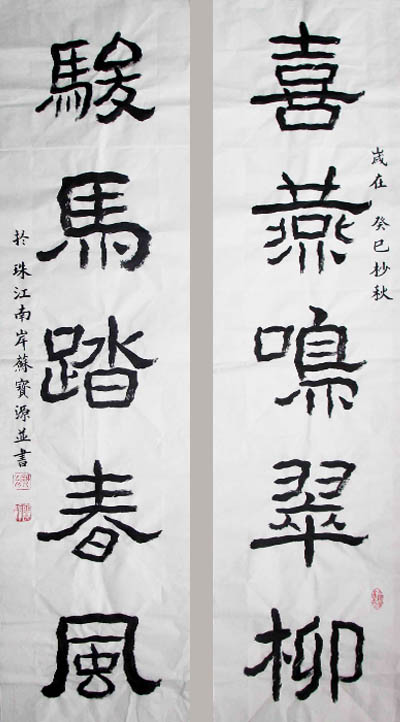 喜燕鳴翠柳
歲在 癸巳杪秋
駿馬踏春風
於珠江南岸蘇寶源並書